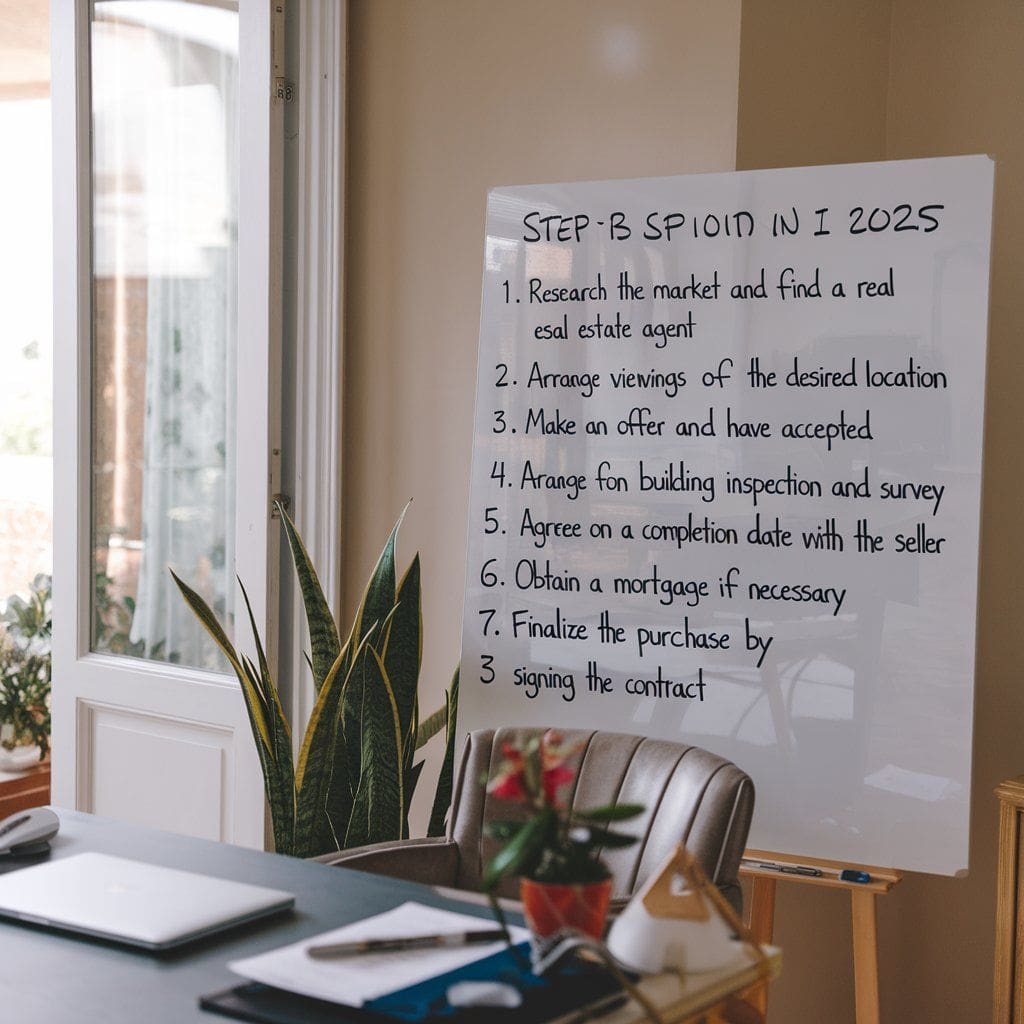 STEP-B SPIOID IN I 2025
1. Research the market and find a real
esal estate agent
2. Arrange viewings of the desired location
3. Make an offer and have accepted
4. Arange fon building inspection and survey
5. Agree on a completion date with the seller
6. Obtain a mortgage if necessary
7. Finalize the purchase by
3 signing the contract